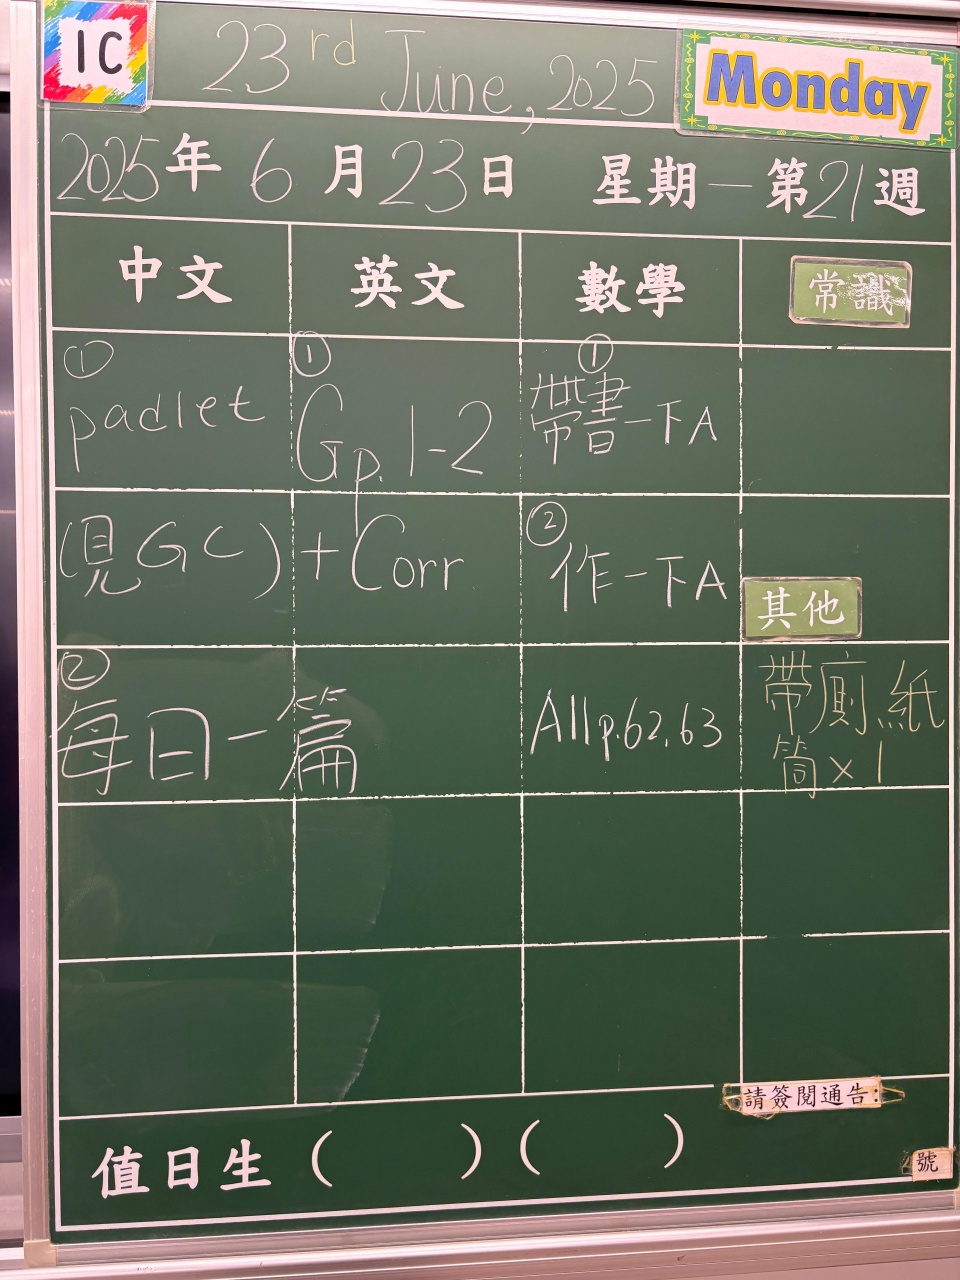 1C
23rd June, 2025
Monday
2025年 6月23日 星期一 第21週
中文 英文 數學 常識
① padlet
(見GC)
② 每日一篇
① Gp. 1-2
+ Corr
① 帶書一下A
② 作一下A
All p.62, 63
其他
帶廁紙
筒x1
請簽閱通告
號
值日生 ( ) ( )